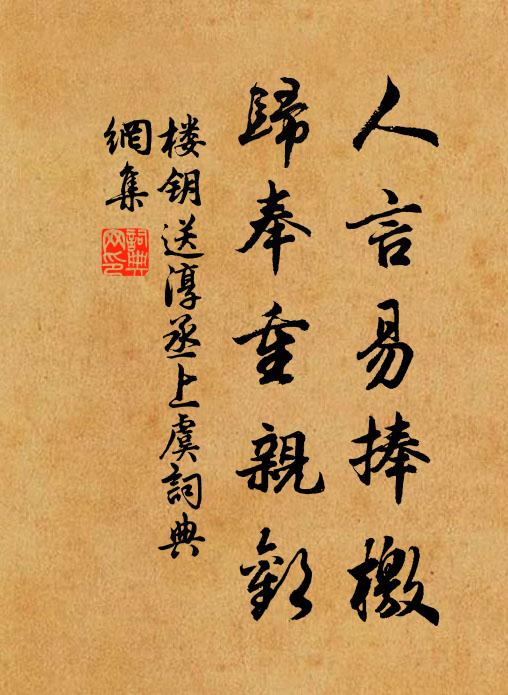 人言易捧檄
歸奉重親歡
楼钥送淳丞上虞詞典
網集
詞典網印